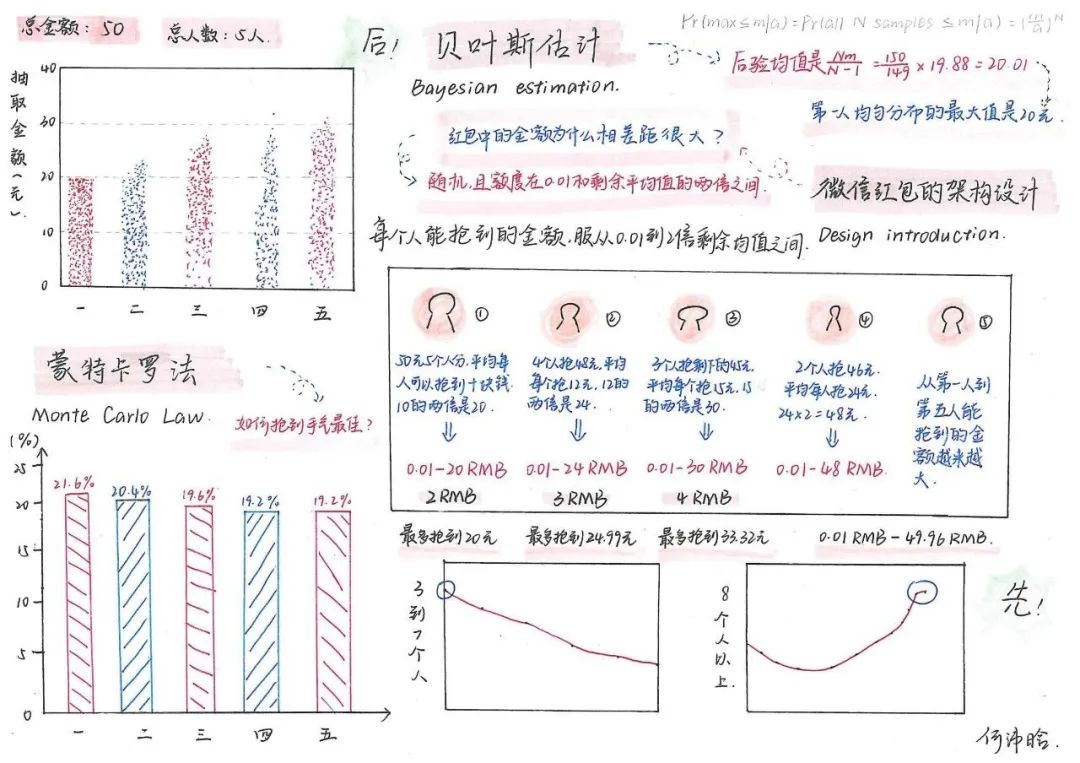 总金额：50
总人数：5人.
抽取金额（元）
40
30
20
10
0
一 二 三 四 五
后！
贝叶斯估计
Bayesian estimation.
Pr(max≤m|a)=Pr(all N samples ≤m|a)=(m/a)^N
后验均值是Nm/N-1=150/149×19.88=20.01
第一人均匀分布的最大值是20元.
红包中的金额为什么相差距很大？
随机,且额度在0.01和剩余平均值的两倍之间.
微信红包的架构设计
Design introduction.
每个人能抢到的金额,服从0.01到2倍剩余均值之间.
①
50元5个人分,平均每
人可以抢到十块钱
10的两倍是20.
⇓
0.01-20 RMB
2 RMB
最多抢到20元
②
4个人抢48元,平均
每个抢12元,12的
两倍是24.
⇓
0.01-24 RMB
3 RMB
最多抢到24.99元
③
3个人抢剩下的45元,
平均每个抢15元.15
的两倍是30.
⇓
0.01-30 RMB
4 RMB
最多抢到33.32元
④
2个人抢46元.
平均每人抢24元.
24×2=48元.
⇓
0.01-48 RMB.
0.01 RMB-49.96 RMB.
⑤
从第一人到
第五人能
抢到的金
额越来越
大.
蒙特卡罗法
Monte Carlo Law.
如何抢到手气最佳？
(%)
25
20
15
10
5
0
21.6%
20.4%
19.6%
19.2%
19.2%
一 二 三 四 五
3到7个人
8个人以上.
先！
何沛晗.